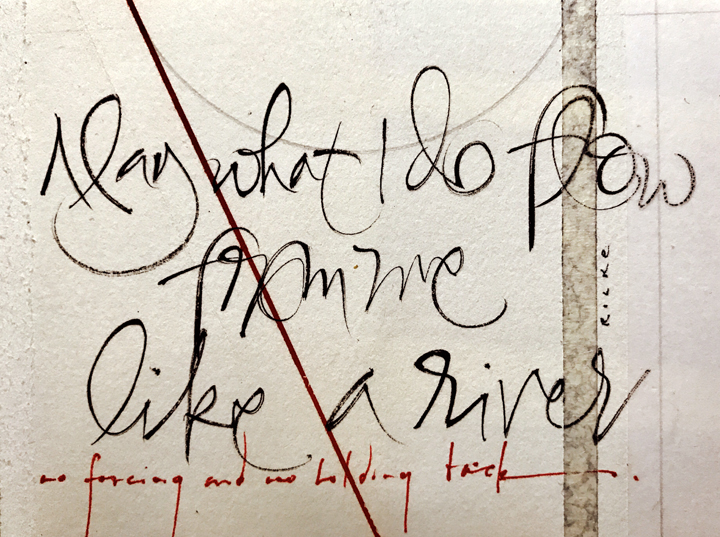 May what I do flow
from me
like a river
no forcing and no holding back.
RILKE